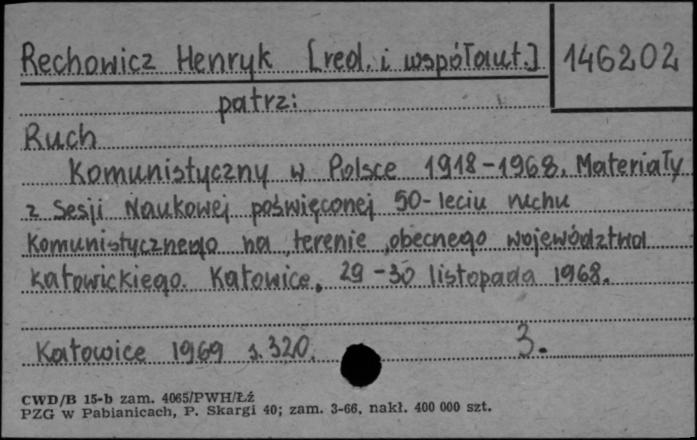 Rechowicz Henryk [red. i współaut.] 146202
patrz:
Ruch
Komunistyczny w Polsce 1918-1968. Materiały
z Sesji Naukowej poświęconej 50-leciu ruchu
komunistycznego na terenie obecnego województwa
katowickiego. Katowice, 29-30 listopada 1968.
Katowice 1969 s. 320. 3.
CWD/B 15-b zam. 4065/PWH/Łź
PZG w Pabianicach, P. Skargi 40; zam. 3-66, nakł. 400 000 szt.